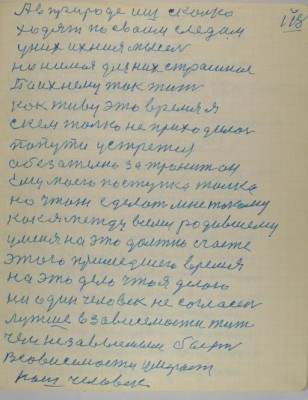 118
А в природе их сколко
ходят по своим следам
у них ихния мысел
но нимоя для них страшное
Поихнему так жит
как живу это время я
с кем толко не приходилос
попути устретит
обезателно затронит он
ему моего поступка
но чтож сделат мне такому
как я между всеми родившему
у меня на это должно счасте
этого пришедшего время
на это дело что я делаю
ни один человек не согласен
лутше в зависемости жит
чем независемым быт
В зависимости умирает
наш человек